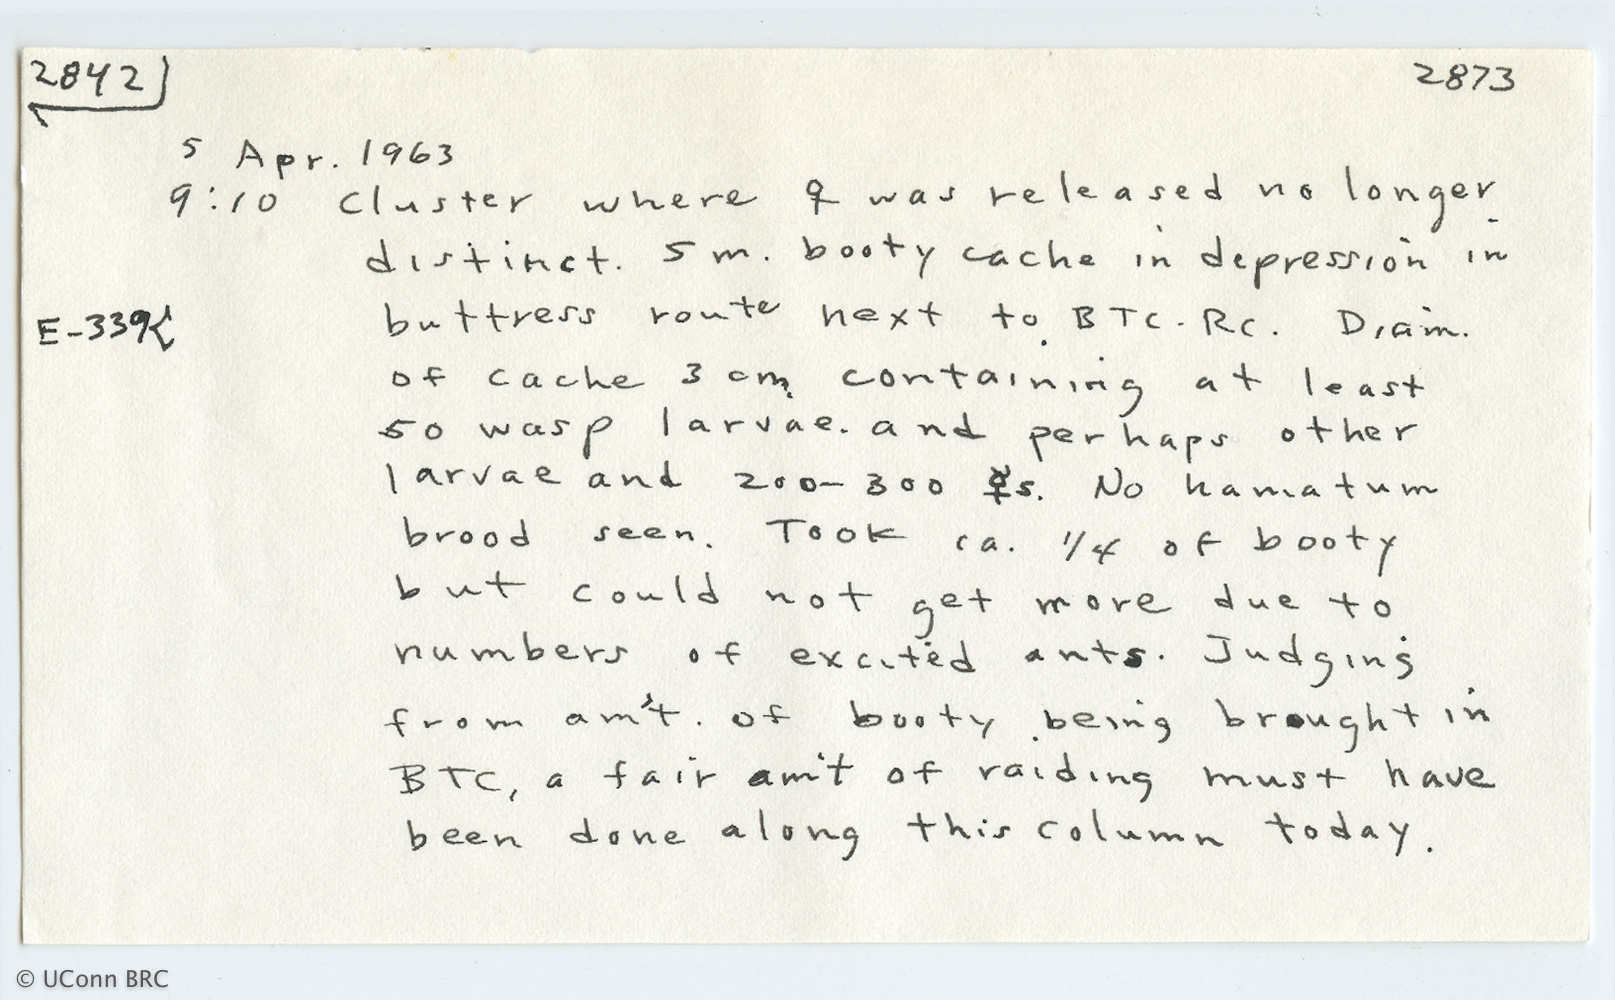 2842
2873
5 Apr. 1963
9:10 Cluster where ♀ was released no longer
distinct. 5 m. booty cache in depression in
buttress route next to BTC-RC. Diam.
E-339
of cache 3 cm, containing at least
50 wasp larvae. and perhaps other
larvae and 200-300 ☿s. No hamatum
brood seen. Took ca. 1/4 of booty
but could not get more due to
numbers of excited ants. Judging
from am't. of booty being brought in
BTC, a fair am't of raiding must have
been done along this column today.
© UConn BRC